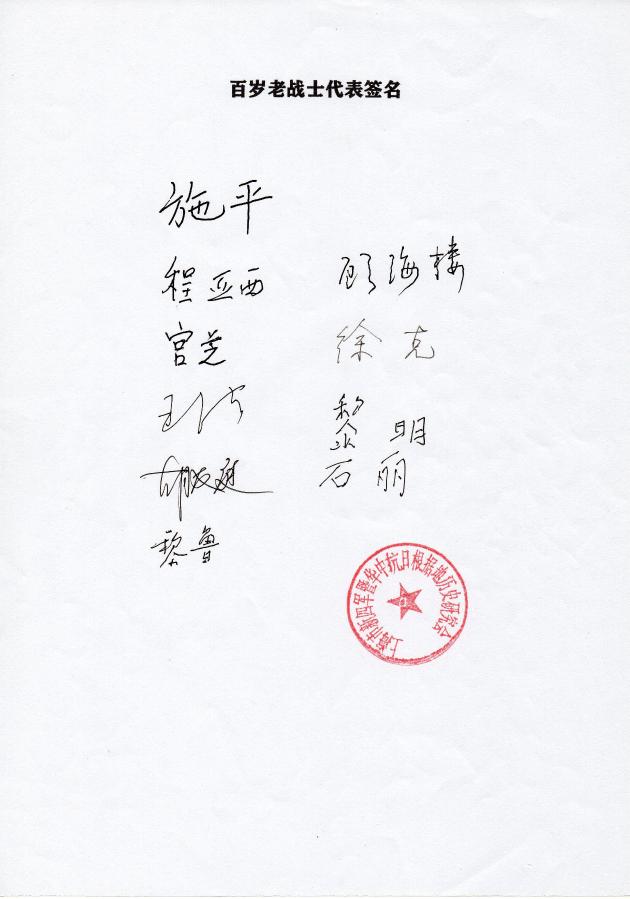 百岁老战士代表签名
施平
程亚西 顾海楼
宫芝 徐克
黎明
石丽
黎鲁
上海市新四军暨华中抗日根据地历史研究会